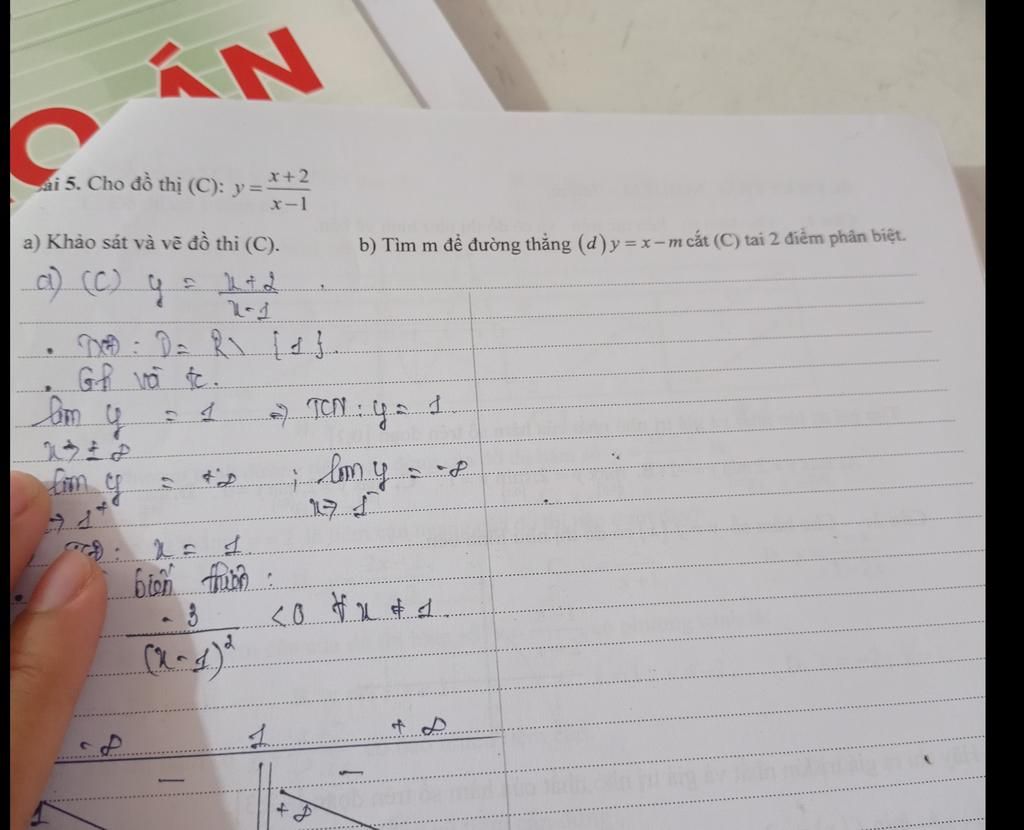 OÁN
ài 5. Cho đồ thị (C): y = \frac{x+2}{x-1}
a) Khảo sát và vẽ đồ thi (C). b) Tìm m để đường thẳng (d) y = x - m cắt (C) tai 2 điểm phân biệt.
a) (C) y = \frac{x+2}{x-1}
. TXĐ : D = R \ {1}.
. Gh và tc.
lim y = 1 => TCN : y = 1
x → ± ∞
lim y = +∞ ; lim y = -∞
→ 1⁺ x → 1⁻
TCĐ : x = 1
biến thiên :
\frac{-3}{(x-1)²} < 0 ∀ x ≠ 1.
-∞ 1 + ∞
— || —
1 || +∞